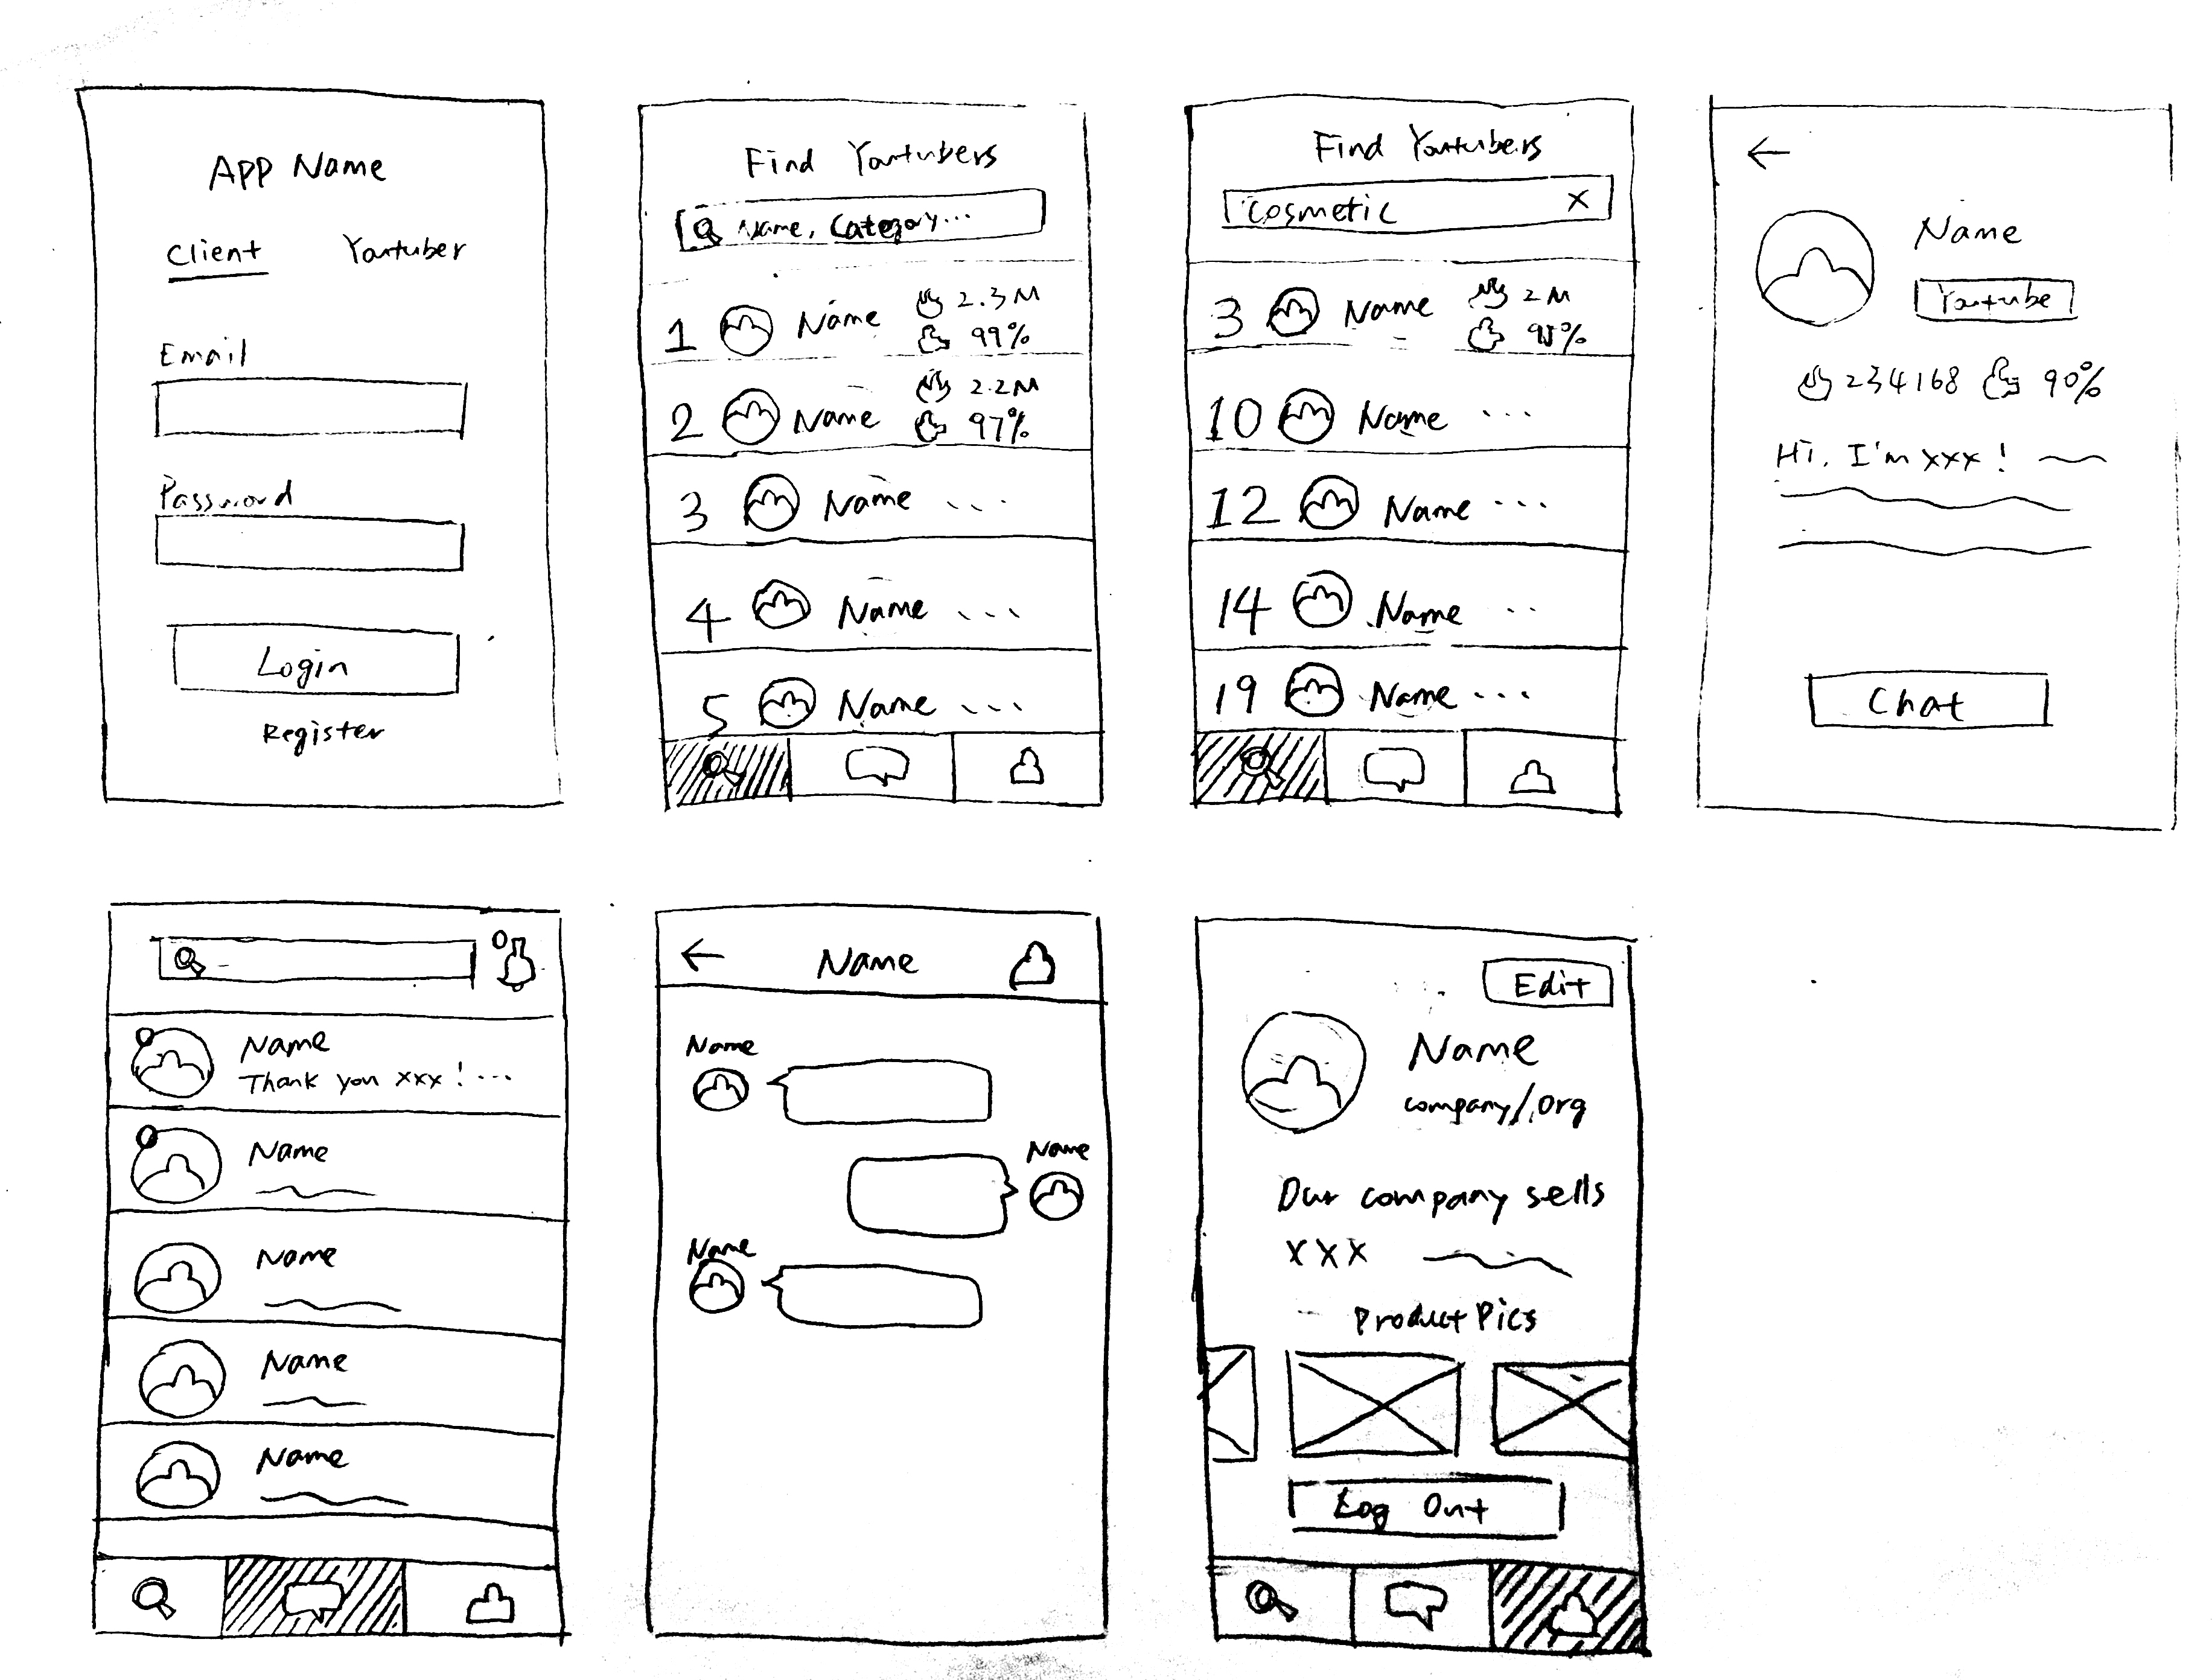 APP Name
Client Youtuber
Email
Password
Login
Register
Find Youtubers
Name, Category...
1 Name 2.3M
99%
2 Name 2.2M
97%
3 Name ...
4 Name ...
5 Name ...
Find Youtubers
Cosmetic X
3 Name 2M
98%
10 Name ...
12 Name ...
14 Name ..
19 Name ...
←
Name
Youtube
234168 90%
Hi, I'm xxx!
Chat
Name
Thank you xxx! ...
Name
Name
Name
Name
← Name
Name
Name
Name
Edit
Name
company/Org
Our company sells
XXX
Product Pics
Log Out